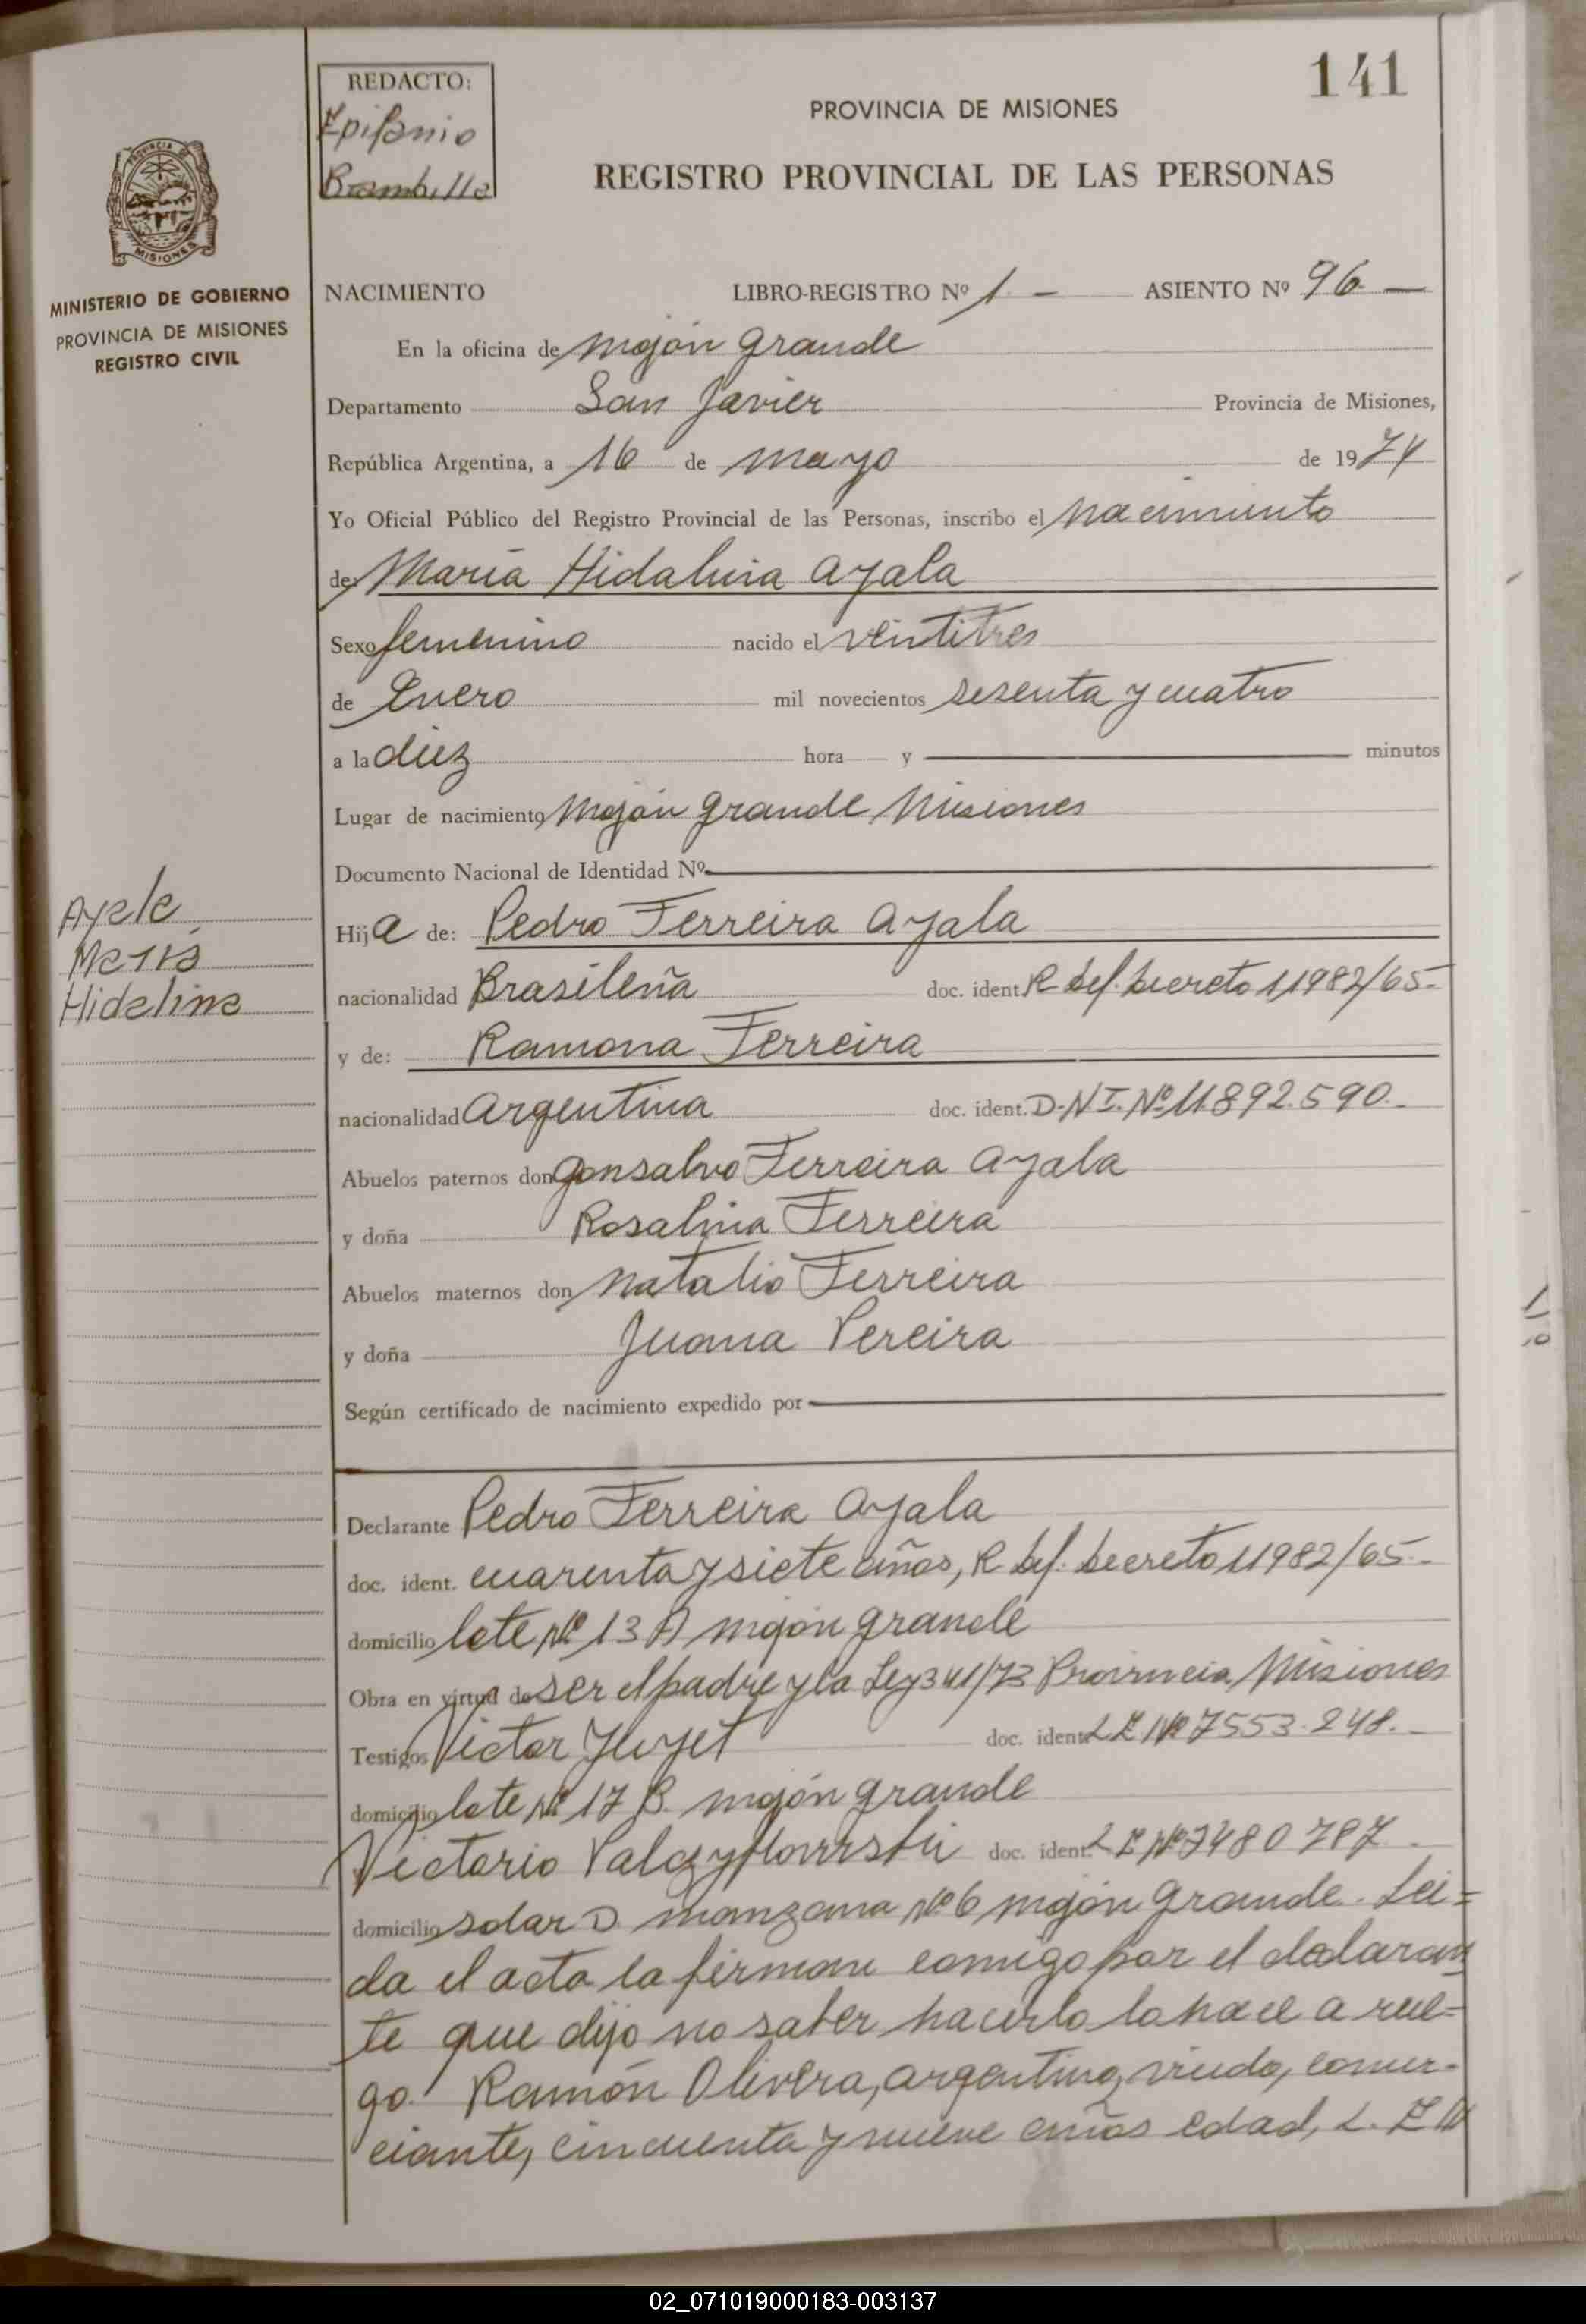 141
REDACTO:
Epifanio
Brambilla
PROVINCIA DE MISIONES
REGISTRO PROVINCIAL DE LAS PERSONAS
PROVINCIA DE
MISIONES
MINISTERIO DE GOBIERNO
PROVINCIA DE MISIONES
REGISTRO CIVIL
NACIMIENTO LIBRO-REGISTRO Nº 1 - ASIENTO Nº 96 -
En la oficina de Mojón Grande
Departamento San Javier Provincia de Misiones,
República Argentina, a 16 de mayo de 1974
Yo Oficial Público del Registro Provincial de las Personas, inscribo el nacimiento
de María Hidalina Ayala
Sexo femenino nacido el ventitres
de Enero mil novecientos sesenta y cuatro
a la diez hora y minutos
Lugar de nacimiento Mojón Grande Misiones
Documento Nacional de Identidad Nº
Ayala
María
Hidalina
Hija de: Pedro Ferreira Ayala
nacionalidad Brasileña doc. ident R Def. Decreto 11982/65-
y de: Ramona Ferreira
nacionalidad Argentina doc. ident. D.N I. Nº 11.892.590.-
Abuelos paternos don Gonsalvo Ferreira Ayala
y doña Rosalina Ferreira
Abuelos maternos don Natalio Ferreira
y doña Juana Pereira
Según certificado de nacimiento expedido por
Declarante Pedro Ferreira Ayala
doc. ident. cuarenta y siete años, R Def. Decreto 11982/65.-
domicilio lote Nº 13 A mojón grande
Obra en virtud de ser el padre y la Ley 341/73 Provincia Misiones
Testigos Victor doc. ident. L E Nº 7553.248.-
domicilio lote Nº 17 B. mojón grande
Victorio doc. ident. L E Nº 7480787.
domicilio solar D manzana Nº 6 mojón grande. Lei=
da el acta la firman comigo por el declaran
te que dijo no saber hacerlo lo hace a rue=
go. Ramón Olivera, argentino, viudo, comer-
ciante, cincuenta y nueve años edad, L. E Nº
02_071019000183-003137